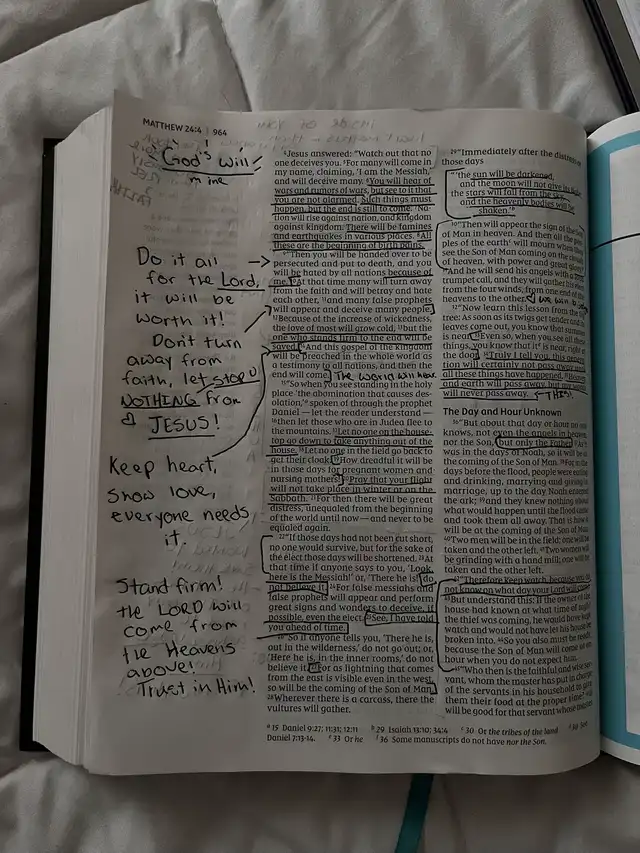 MATTHEW 24:4 | 964
God's will!
mine
Do it all
for the Lord,
it will be
worth it!
Don't turn
away from
faith, let stop
NOTHING from
JESUS!
Keep heart,
show love,
everyone needs
it.
Stand firm!
the LORD will
come from
the Heavens
above!
Trust in Him!
⁴Jesus answered: "Watch out that no
one deceives you. ⁵For many will come in
my name, claiming, 'I am the Messiah,'
and will deceive many. ⁶You will hear of
wars and rumors of wars, but see to it that
you are not alarmed. Such things must
happen, but the end is still to come. ⁷Na-
tion will rise against nation, and kingdom
against kingdom. There will be famines
and earthquakes in various places. ⁸All
these are the beginning of birth pains.
⁹"Then you will be handed over to be
persecuted and put to death, and you
will be hated by all nations because of
me. ¹⁰At that time many will turn away
from the faith and will betray and hate
each other, ¹¹and many false prophets
will appear and deceive many people.
¹²Because of the increase of wickedness,
the love of most will grow cold, ¹³but the
one who stands firm to the end will be
saved. ¹⁴And this gospel of the kingdom
will be preached in the whole world as
a testimony to all nations, and then the
end will come. The world will hear
¹⁵"So when you see standing in the holy
place 'the abomination that causes des-
olation,'ᵃ spoken of through the prophet
Daniel — let the reader understand —
¹⁶then let those who are in Judea flee to
the mountains. ¹⁷Let no one on the house-
top go down to take anything out of the
house. ¹⁸Let no one in the field go back to
get their cloak. ¹⁹How dreadful it will be
in those days for pregnant women and
nursing mothers! ²⁰Pray that your flight
will not take place in winter or on the
Sabbath. ²¹For then there will be great
distress, unequaled from the beginning
of the world until now — and never to be
equaled again.
²²"If those days had not been cut short,
no one would survive, but for the sake of
the elect those days will be shortened. ²³At
that time if anyone says to you, 'Look,
here is the Messiah!' or, 'There he is!' do
not believe it. ²⁴For false messiahs and
false prophets will appear and perform
great signs and wonders to deceive, if
possible, even the elect. ²⁵See, I have told
you ahead of time.
²⁶"So if anyone tells you, 'There he is,
out in the wilderness,' do not go out; or,
'Here he is, in the inner rooms,' do not
believe it. ²⁷For as lightning that comes
from the east is visible even in the west,
so will be the coming of the Son of Man.
²⁸Wherever there is a carcass, there the
vultures will gather.
²⁹"Immediately after the distress of
those days
"'the sun will be darkened,
and the moon will not give its light;
the stars will fall from the sky,
and the heavenly bodies will be
shaken.'ᵇ
³⁰"Then will appear the sign of the Son
of Man in heaven. And then all the peo-
ples of the earthᶜ will mourn when they
see the Son of Man coming on the clouds
of heaven, with power and great glory.ᵈ
³¹And he will send his angels with a loud
trumpet call, and they will gather his elect
from the four winds, from one end of the
heavens to the other.
³²"Now learn this lesson from the fig
tree: As soon as its twigs get tender and its
leaves come out, you know that summer
is near. ³³Even so, when you see all these
things, you know that itᵉ is near, right at
the door. ³⁴Truly I tell you, this genera-
tion will certainly not pass away until
all these things have happened. ³⁵Heaven
and earth will pass away, but my words
will never pass away. ← THIS!
The Day and Hour Unknown
³⁶"But about that day or hour no one
knows, not even the angels in heaven,
nor the Son,ᶠ but only the Father. ³⁷As it
was in the days of Noah, so it will be at
the coming of the Son of Man. ³⁸For in the
days before the flood, people were eating
and drinking, marrying and giving in
marriage, up to the day Noah entered
the ark; ³⁹and they knew nothing about
what would happen until the flood came
and took them all away. That is how it
will be at the coming of the Son of Man.
⁴⁰Two men will be in the field; one will be
taken and the other left. ⁴¹Two women will
be grinding with a hand mill; one will be
taken and the other left.
⁴²"Therefore keep watch, because you do
not know on what day your Lord will come.
⁴³But understand this: If the owner of the
house had known at what time of night
the thief was coming, he would have kept
watch and would not have let his house be
broken into. ⁴⁴So you also must be ready,
because the Son of Man will come at an
hour when you do not expect him.
⁴⁵"Who then is the faithful and wise ser-
vant, whom the master has put in charge
of the servants in his household to give
them their food at the proper time? ⁴⁶It
will be good for that servant whose master
ᵃ 15 Daniel 9:27; 11:31; 12:11 ᵇ 29 Isaiah 13:10; 34:4 ᶜ 30 Or the tribes of the land ᵈ 30 See
Daniel 7:13-14. ᵉ 33 Or he ᶠ 36 Some manuscripts do not have nor the Son.